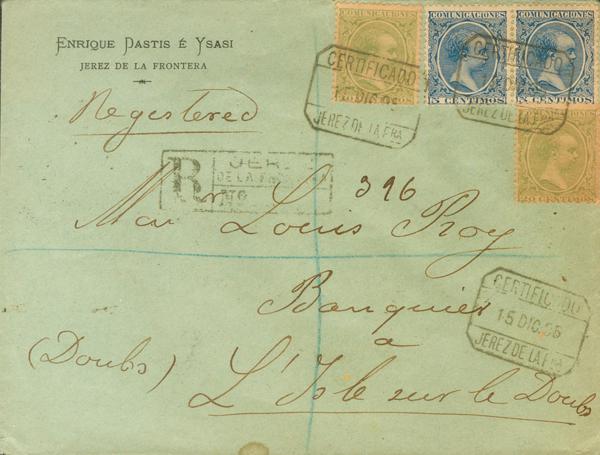 ENRIQUE DASTIS É YSASI
JEREZ DE LA FRONTERA
Registered
COMUNICACIONES
COMUNICACIONES
COMUNICACIONES
5 CENTIMOS
5 CENTIMOS
CERTIFICADO
15 DIC 95
JEREZ DE LA FRA
CERTIFICADO
JEREZ DE LA FRA
CENTIMOS
R
JEREZ
DE LA FRONTERA
No.
396
Mon Louis Roy
Banquier
à
(Doubs) L'Isle sur le Doubs
CERTIFICADO
15 DIC 95
JEREZ DE LA FRA